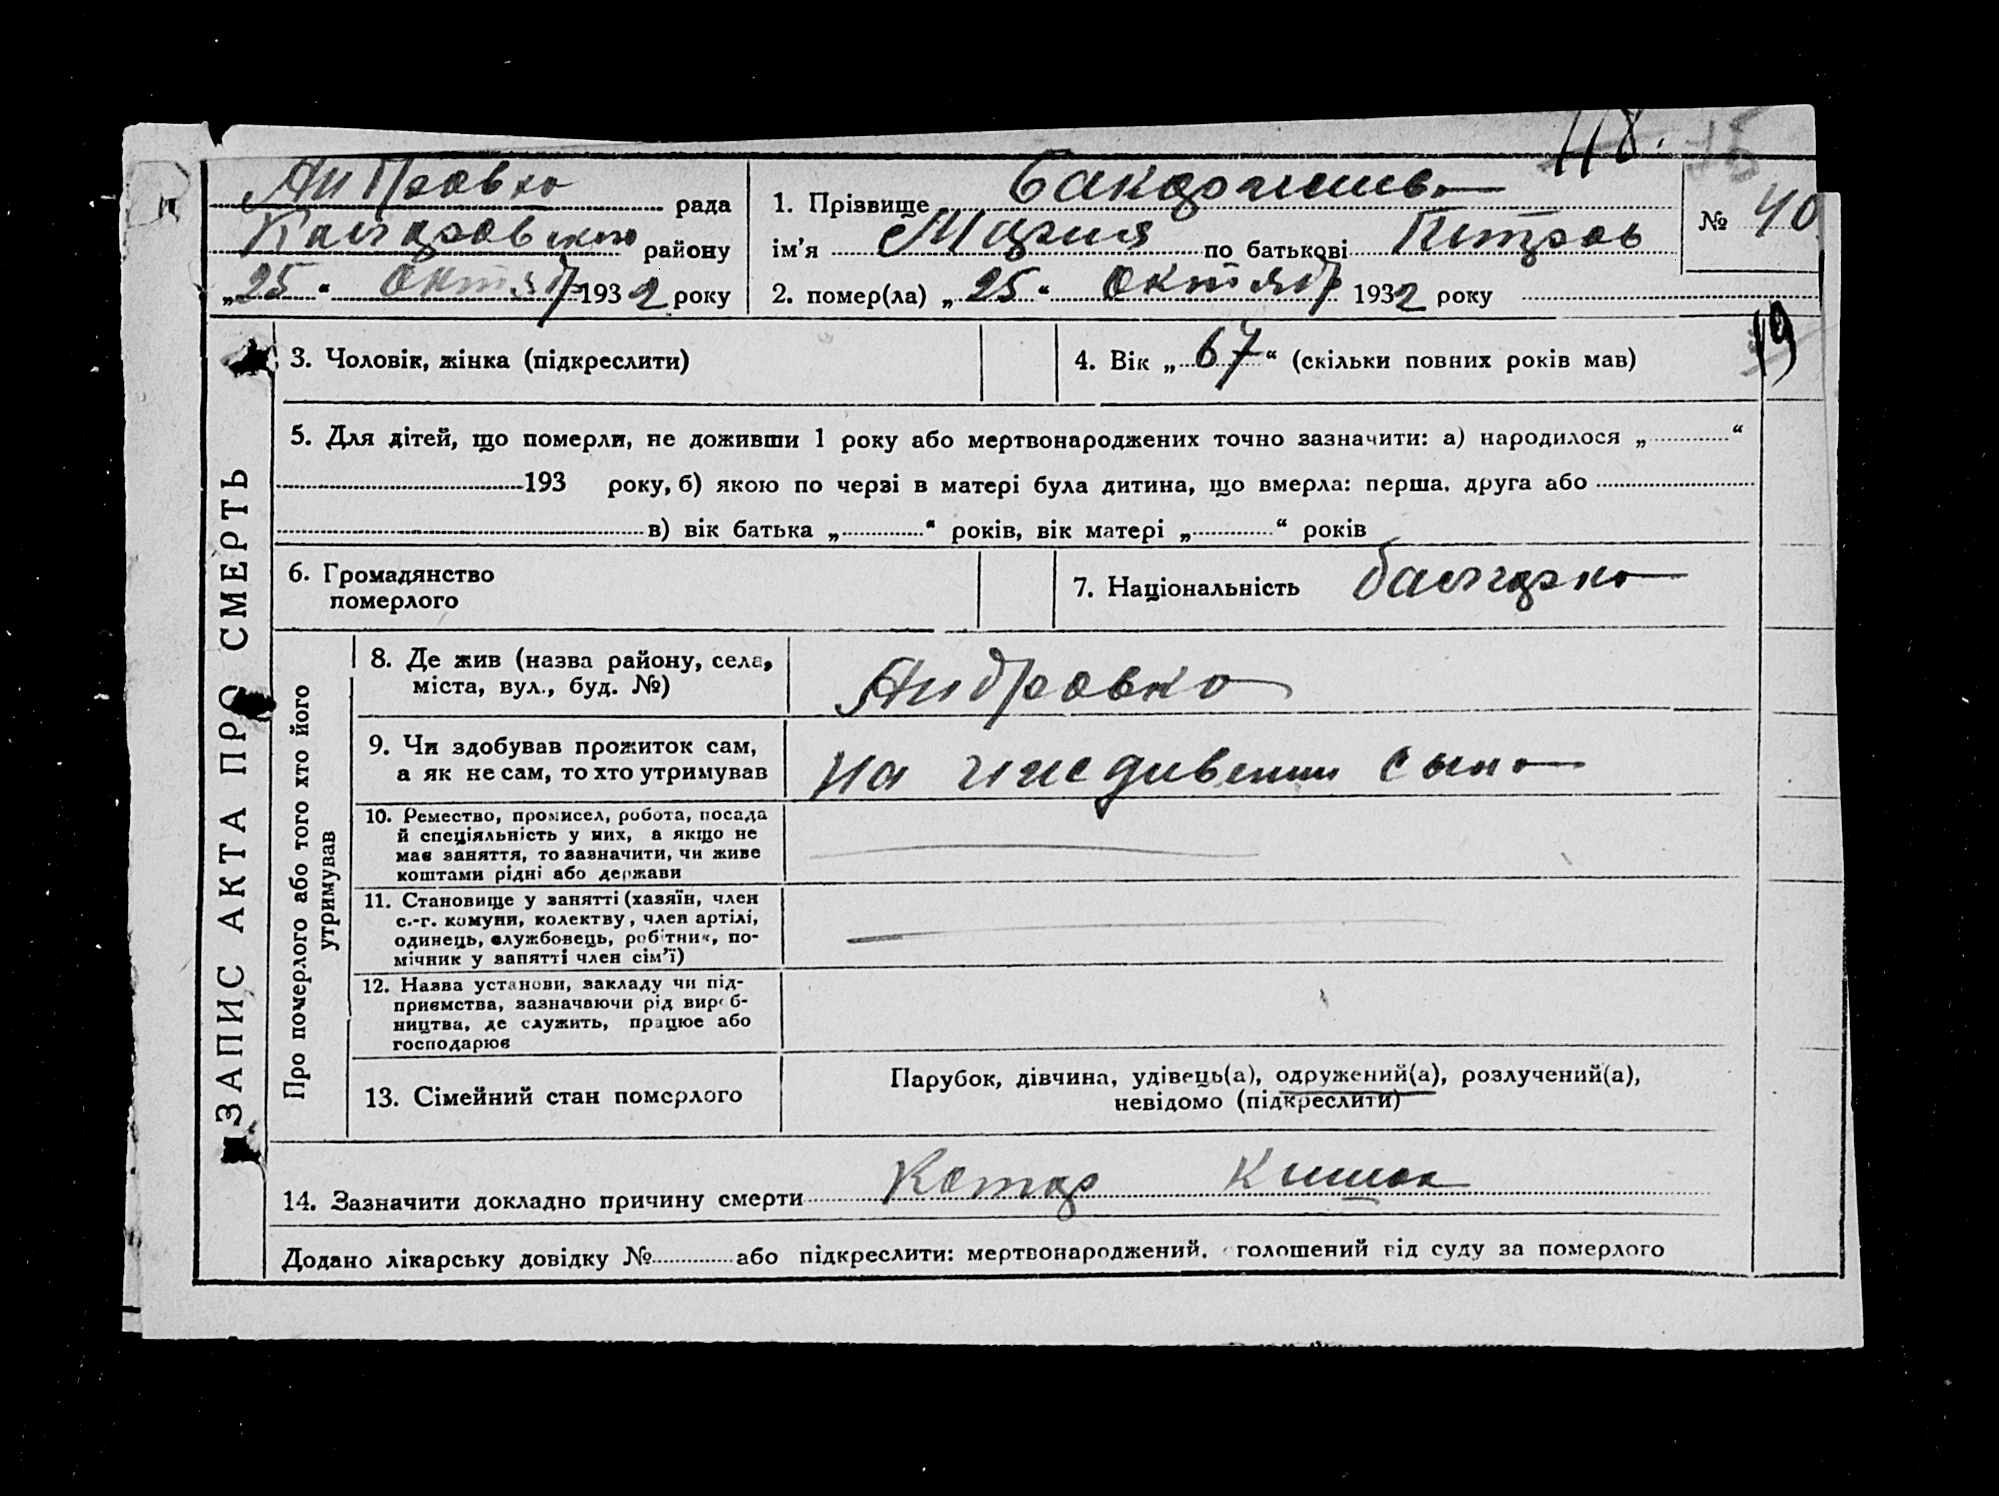 118. 75
Андровка рада
Коларовского району
„25“ Октябр 1932 року
1. Прізвище
ім'я Мария по батькові Петров
2. помер(ла) „25“ Октябр 1932 року
№ 40
19
ЗАПИС АКТА ПРО СМЕРТЬ
3. Чоловік, жінка (підкреслити)
4. Вік „67“ (скільки повних років мав)
5. Для дітей, що померли, не доживши 1 року або мертвонароджених точно зазначити: а) народилося „ “
193 року, б) якою по черзі в матері була дитина, що вмерла: перша, друга або
в) вік батька „ “ років, вік матері „ “ років
6. Громадянство
померлого
7. Національність болгарка
Про померлого або того хто його
утримував
8. Де жив (назва району, села,
міста, вул., буд. №)
Андровка
9. Чи здобував прожиток сам,
а як не сам, то хто утримував
на иждивении сына
10. Ремество, промисел, робота, посада
й спеціяльність у них, а якщо не
має заняття, то зазначити, чи живе
коштами рідні або держави
11. Становище у занятті (хазяїн, член
с.-г. комуни, колектву, член артілі,
одинець, службовець, робітник, по-
мічник у занятті член сім'ї)
12. Назва установи, закладу чи під-
приємства, зазначаючи рід вироб-
ництва, де служить, працює або
господарює
13. Сімейний стан померлого
Парубок, дівчина, удівець(а), одружений(а), розлучений(а),
невідомо (підкреслити)
14. Зазначити докладно причину смерти Котар Кишок
Додано лікарську довідку № або підкреслити: мертвонароджений, оголошений від суду за померлого